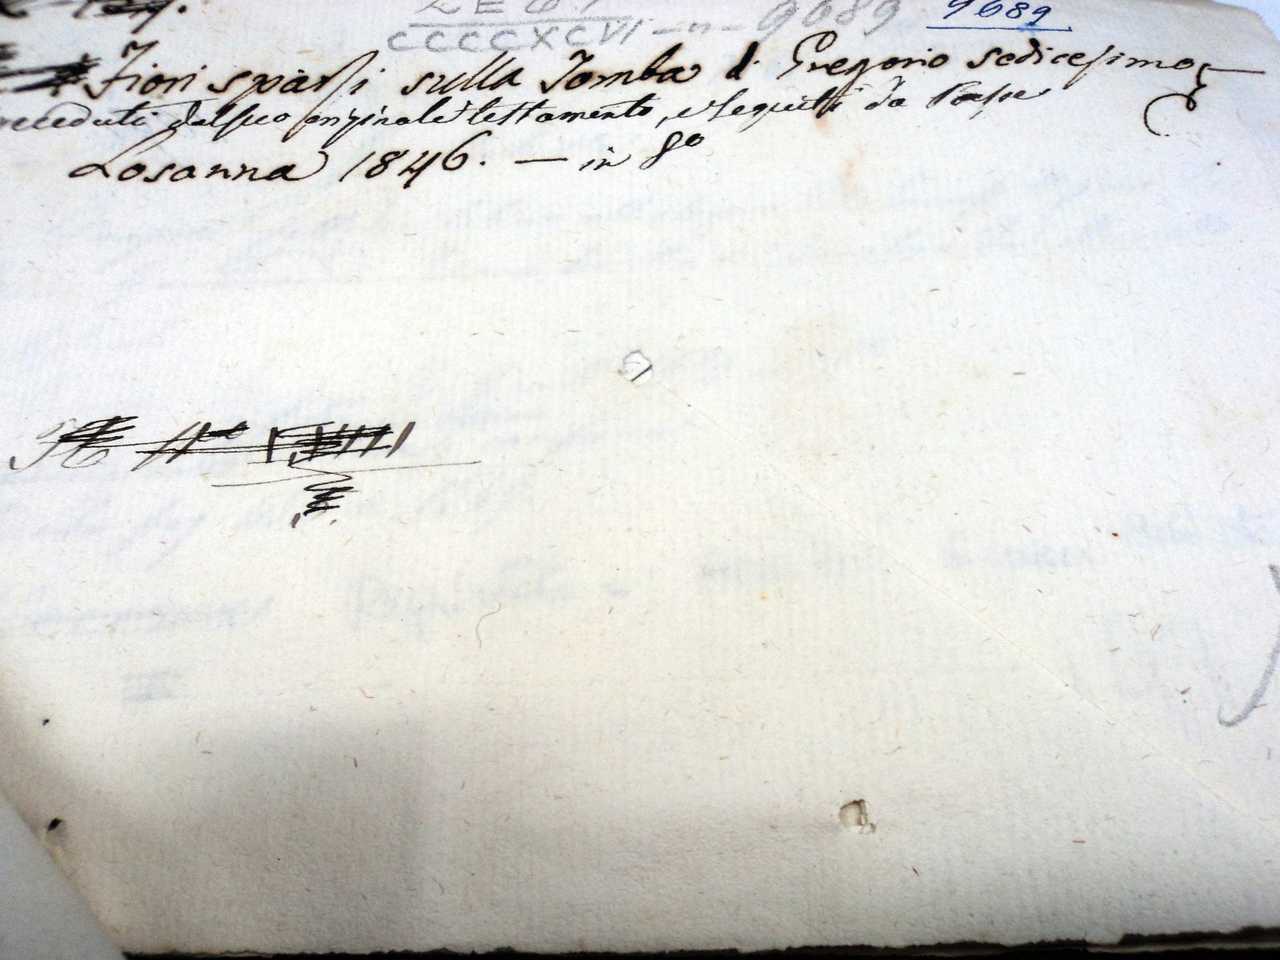 CCCCXCVI — n — 9689 9689
Fiori sparsi sulla Tomba di Gregorio sedicesimo
preceduti dal suo originale testamento, e seguiti da
Losanna 1846. — in 8º